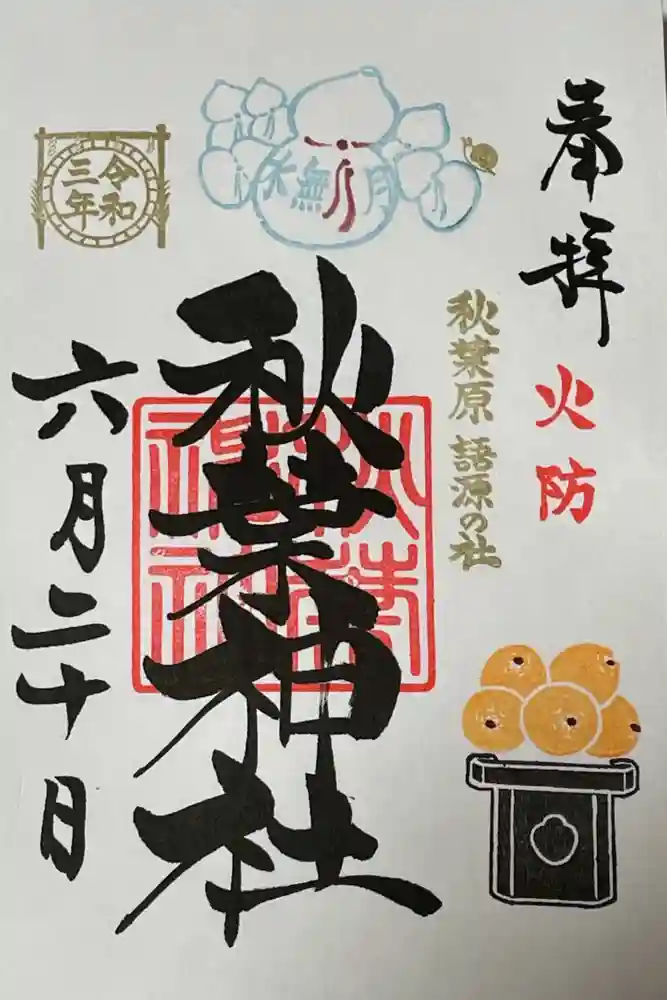 奉拝
火防
秋葉原 語源の社
水無月
秋葉神社
秋葉
神社
令和
三年
六月二十日